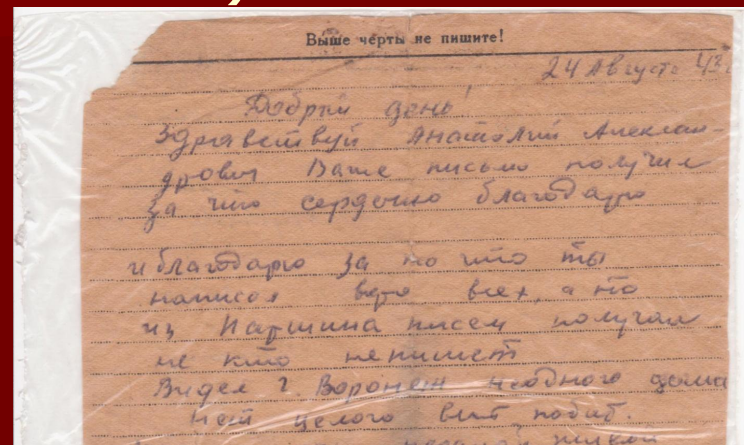 Выше черты не пишите!
24 Августа 43г
Добрый день!
Здравствуй Анатолий Алексан-
дрович Ваше письмо получил
за что сердечно благодарю
и благодарю за то что ты
написал про всех, а то
из Паршина писем получал
не кто непишет
Видел г. Воронеж неодного дома
нет целого